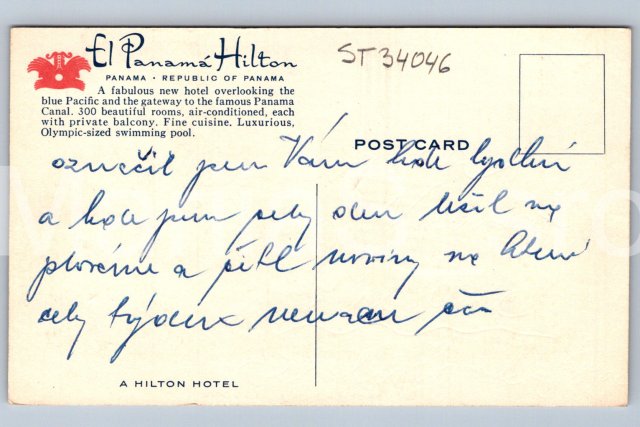 El Panamá Hilton
PANAMA · REPUBLIC OF PANAMA
A fabulous new hotel overlooking the
blue Pacific and the gateway to the famous Panama
Canal. 300 beautiful rooms, air-conditioned, each
with private balcony. Fine cuisine. Luxurious,
Olympic-sized swimming pool.
ST34046
POST CARD
označil jsem Vám kde bydlím
a kde jsem celý den ležel na
a četl noviny na
celý týden nemam čas
A HILTON HOTEL